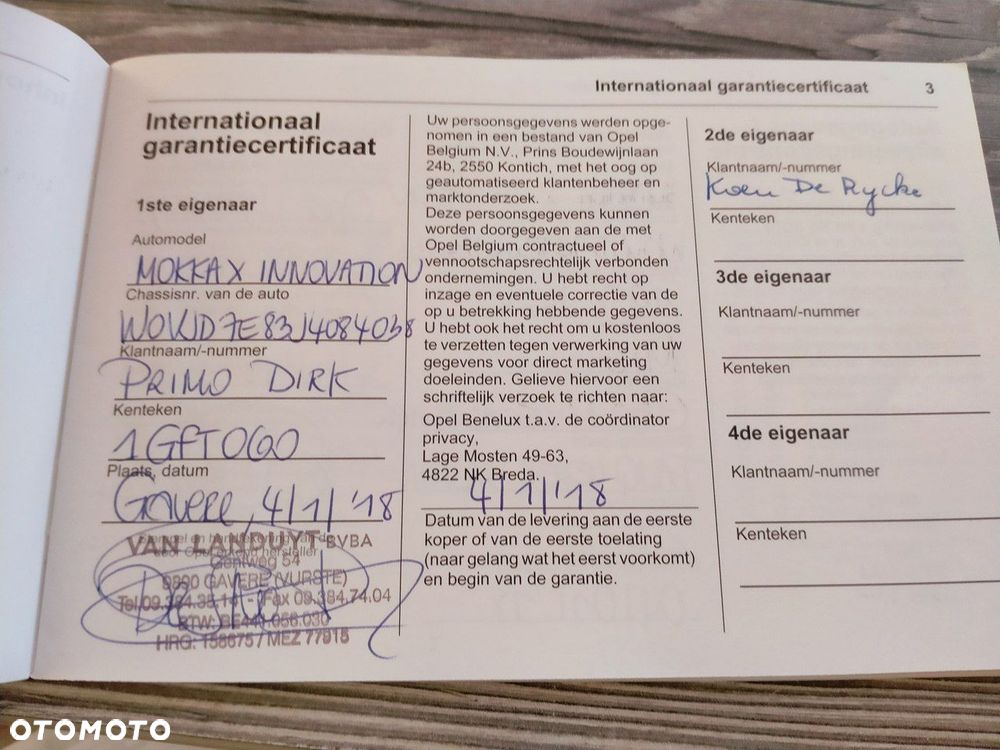 Internationaal garantiecertificaat 3
Internationaal
garantiecertificaat
1ste eigenaar
Automodel
MOKKA X INNOVATION
Chassisnr. van de auto
W0VJD7E83J4084038
Klantnaam/-nummer
PRIMO DIRK
Kenteken
1GFT060
Plaats, datum
GAVERE, 4/1/'18
VAN LANDUYT BVBA
Gentweg 54
9890 GAVERE (VURSTE)
Tel.09.384.35.14 - Fax 09.384.74.04
BTW: BE441.056.030
HRG: 158675 / MEZ 77915
Uw persoonsgegevens werden opge-
nomen in een bestand van Opel
Belgium N.V., Prins Boudewijnlaan
24b, 2550 Kontich, met het oog op
geautomatiseerd klantenbeheer en
marktonderzoek.
Deze persoonsgegevens kunnen
worden doorgegeven aan de met
Opel Belgium contractueel of
vennootschapsrechtelijk verbonden
ondernemingen. U hebt recht op
inzage en eventuele correctie van de
op u betrekking hebbende gegevens.
U hebt ook het recht om u kosteloos
te verzetten tegen verwerking van uw
gegevens voor direct marketing
doeleinden. Gelieve hiervoor een
schriftelijk verzoek te richten naar:
Opel Benelux t.a.v. de coördinator
privacy,
Lage Mosten 49-63,
4822 NK Breda.
4/1/'18
Datum van de levering aan de eerste
koper of van de eerste toelating
(naar gelang wat het eerst voorkomt)
en begin van de garantie.
2de eigenaar
Klantnaam/-nummer
Koen De Rycke
Kenteken
3de eigenaar
Klantnaam/-nummer
Kenteken
4de eigenaar
Klantnaam/-nummer
Kenteken
OTOMOTO